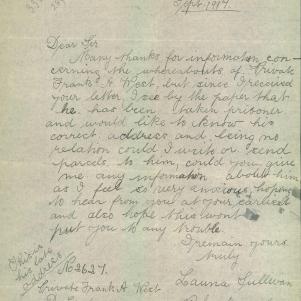 Sept. 1917.
Dear Sir
Many thanks for information con-
cerning the whereabouts of Private
Frank A West, but since I received
your letter, I see by the paper that
he has been taken prisoner
and would like to know his
correct address and being no
relation could I write or send
parcels to him, could you give
me any information about him
as I feel so very anxious, hoping
to hear from you at your earliest
and also hope this wont
put you to any trouble
I remain yours
truly
Launa Sullivan
This is
his late
address
No 2627.
Private Frank A. West